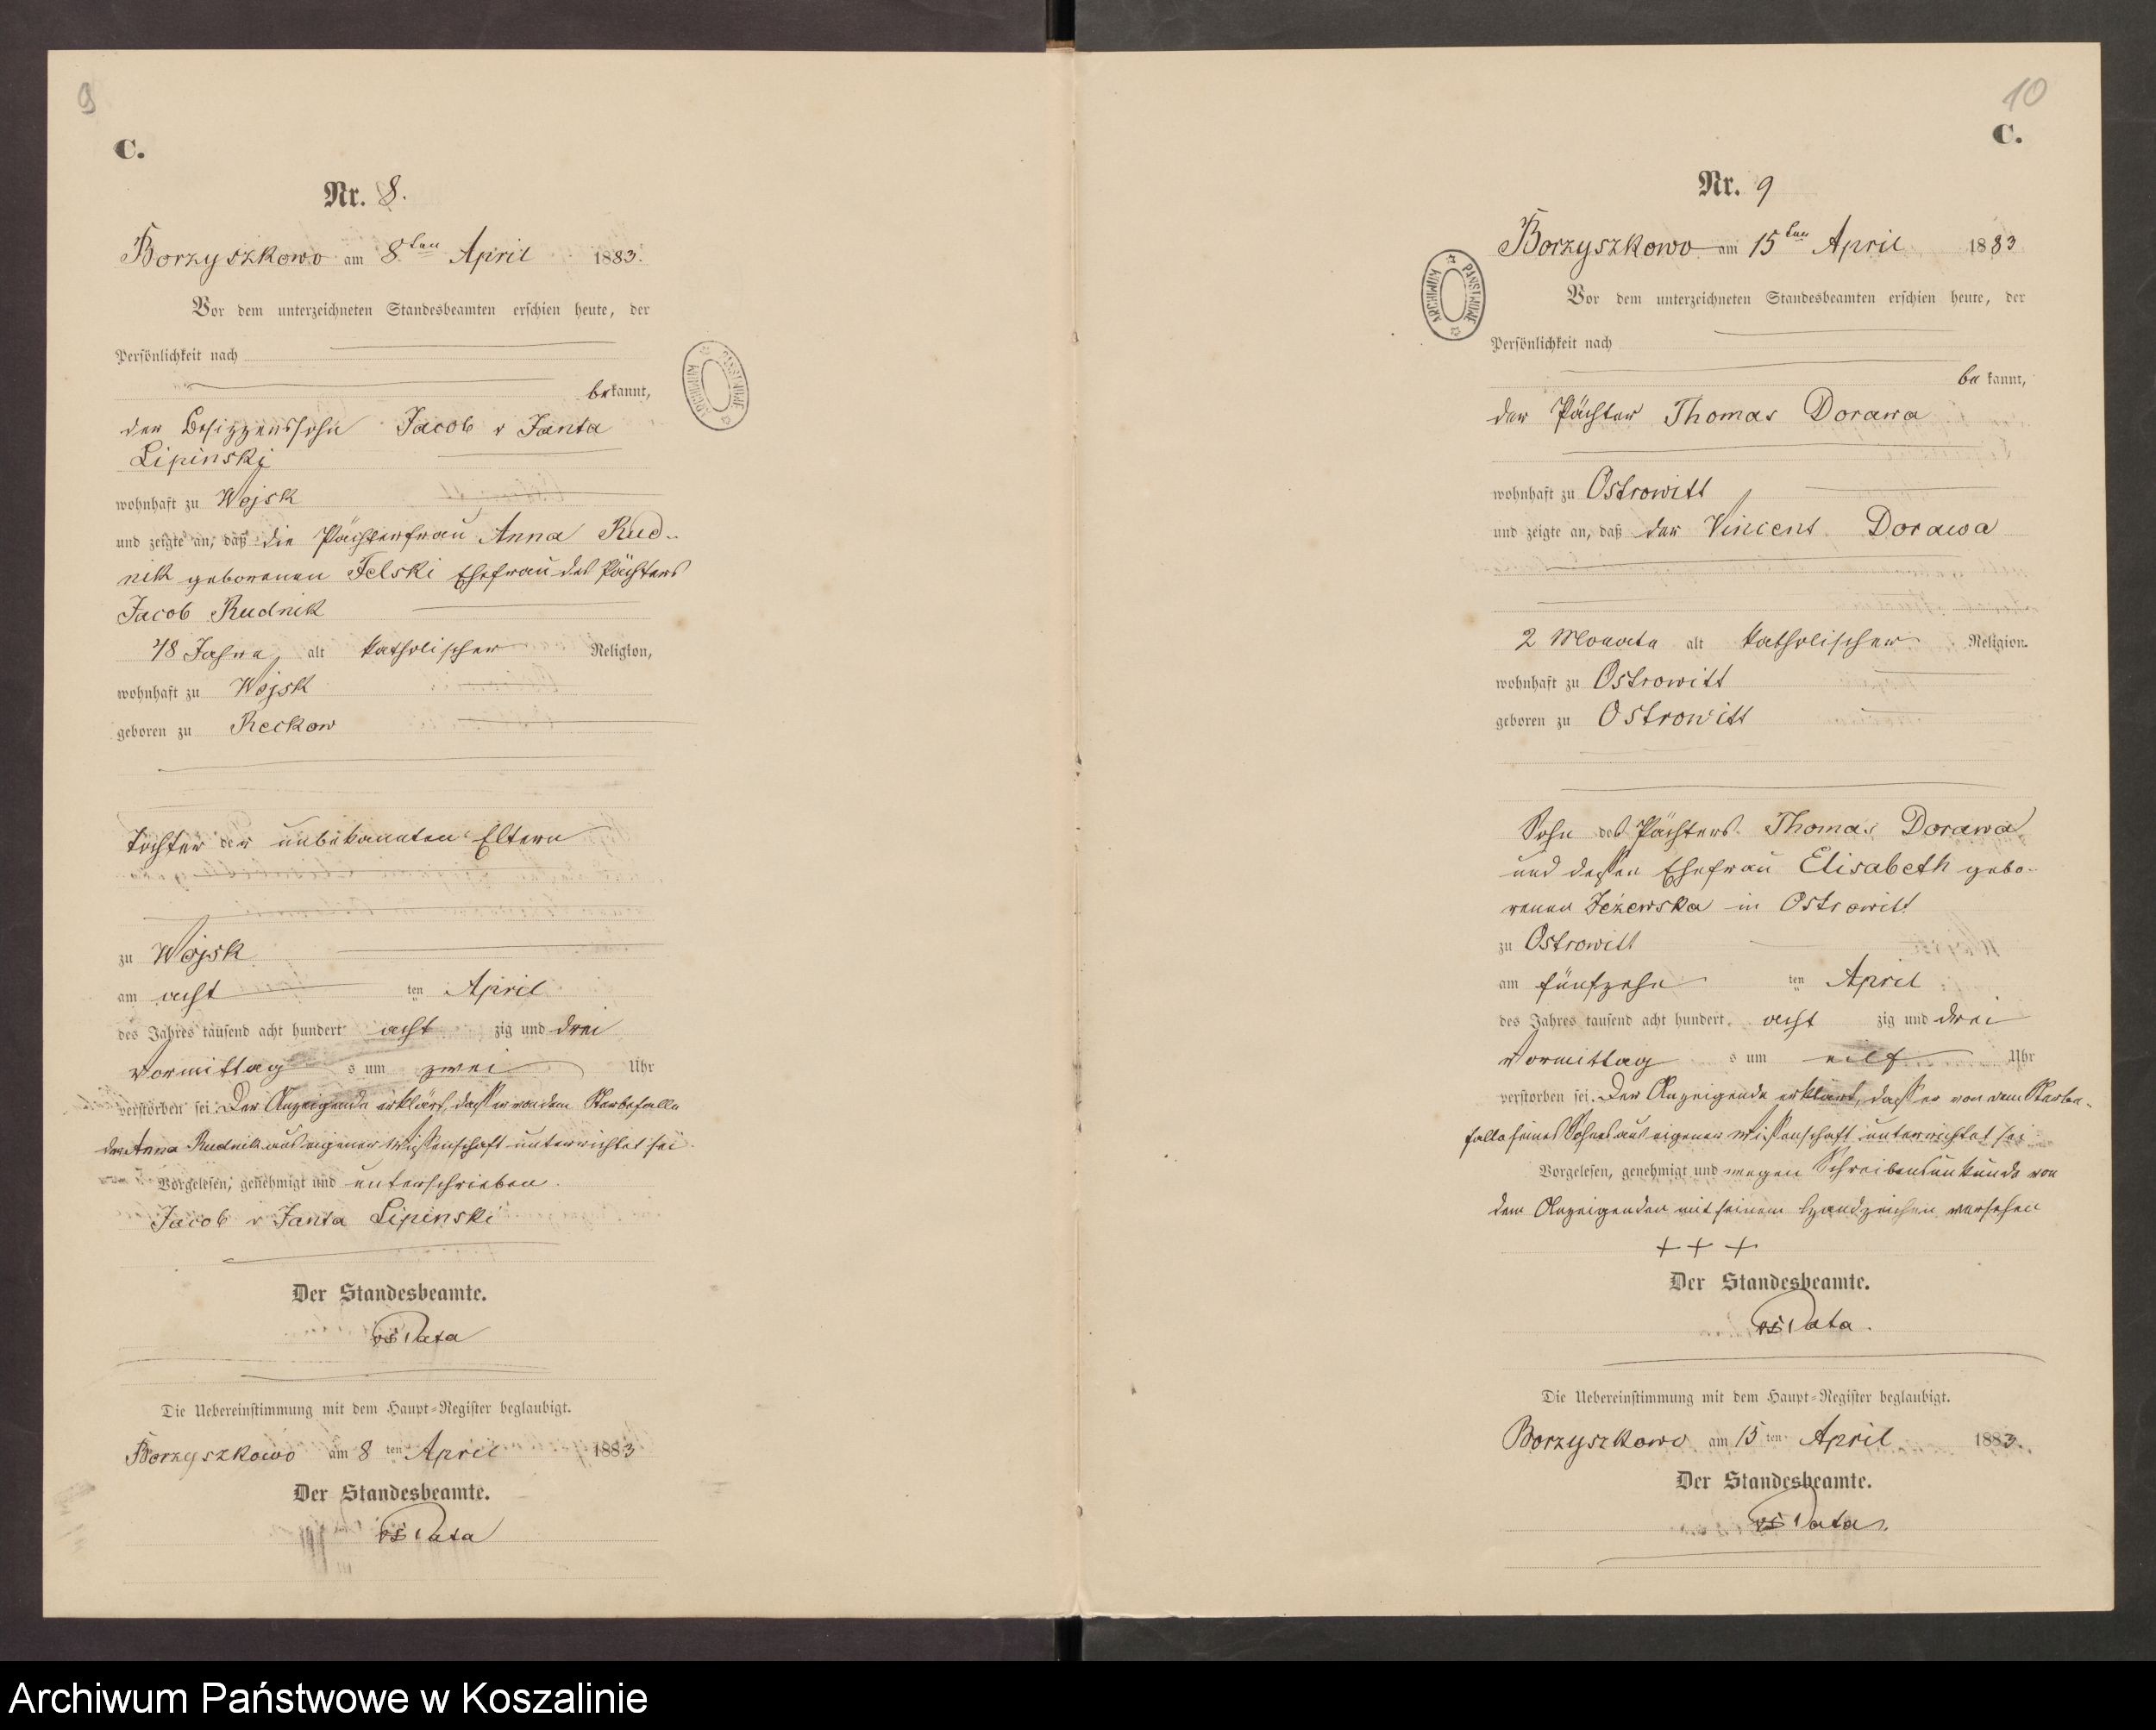 9
C.
Nr. 8.
Borzyszkowo am 8ten April 1883.
Vor dem unterzeichneten Standesbeamten erschien heute, der
Persönlichkeit nach
bekannt,
der Besizzerssohn Jacob v Janta
Lipinski
wohnhaft zu Wojsk
und zeigte an, daß die Pächterfrau Anna Rud-
nik geborenen Felski Ehefrau des Pächters
Jacob Rudnik
48 Jahre, alt katholischer Religion,
wohnhaft zu Wojsk
geboren zu Reckow
Tochter der unbekannten Eltern
zu Wojsk
am acht ten April
des Jahres tausend acht hundert acht zig und drei
Vormittag s um zwei Uhr
verstorben sei. Der Anzeigende erklärt, dass er von dem Sterbefalle
der Anna Rudnik aus eigener Wissenschaft unterrichtet sei
Vorgelesen, genehmigt und unterschrieben.
Jacob v Janta Lipinski
Der Standesbeamte.
Die Uebereinstimmung mit dem Haupt-Register beglaubigt.
Borzyszkowo am 8 ten April 1883
Der Standesbeamte.
ARCHIWUM PAŃSTWOWE
10
C.
Nr. 9
Borzyszkowo am 15ten April 1883
Vor dem unterzeichneten Standesbeamten erschien heute, der
Persönlichkeit nach
be kannt,
der Pächter Thomas Dorawa
wohnhaft zu Ostrowitt
und zeigte an, daß der Vincent Dorawa
2 Monate alt katholischer Religion.
wohnhaft zu Ostrowitt
geboren zu Ostrowitt
Sohn des Pächters Thomas Dorawa
und dessen Ehefrau Elisabeth gebo-
renen Jeżewska in Ostrowitt
zu Ostrowitt
am fünfzehn ten April
des Jahres tausend acht hundert acht zig und drei
Vormittag s um eilf Uhr
verstorben sei. Der Anzeigende erklärt, dass er von dem Sterbe-
falle seines Sohnes aus eigener Wissenschaft unterrichtet sei
Vorgelesen, genehmigt und wegen Schreibensunkunde von
dem Anzeigenden mit seinem Handzeichen versehen
+ + +
Der Standesbeamte.
Die Uebereinstimmung mit dem Haupt-Register beglaubigt.
Borzyszkowo am 15 ten April 1883.
Der Standesbeamte.
ARCHIWUM PAŃSTWOWE
Archiwum Państwowe w Koszalinie